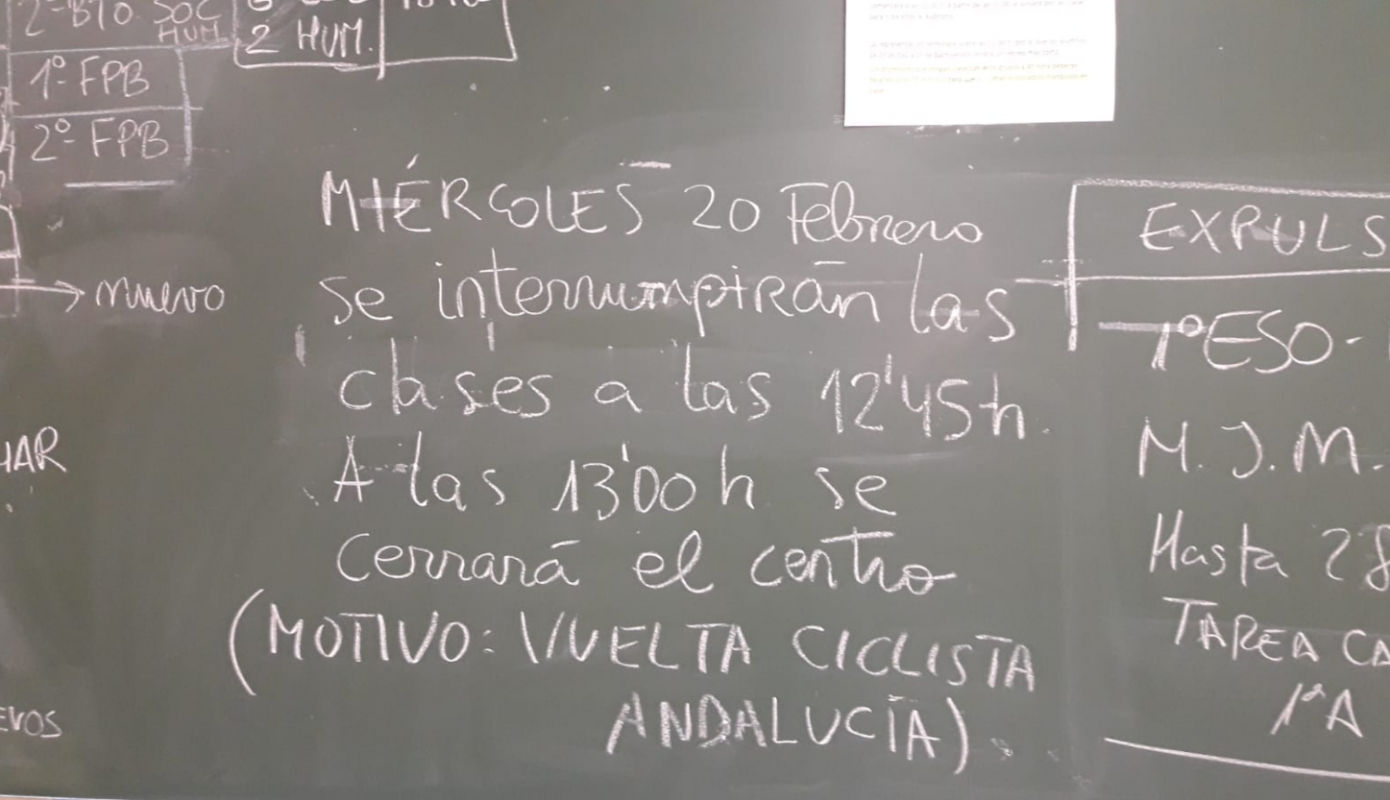 2º BTO SOC
HUM
2 HUM.
1º FPB
2º FPB
→ nuevo
MIÉRCOLES 20 Febrero
se interrumpirán las
clases a las 12'45h.
A las 13'00h se
cerrará el centro
(MOTIVO: VUELTA CICLISTA
ANDALUCÍA).
EXPULS
1º ESO-
M. J. M.
Hasta 28
TAREA CA
1ª A